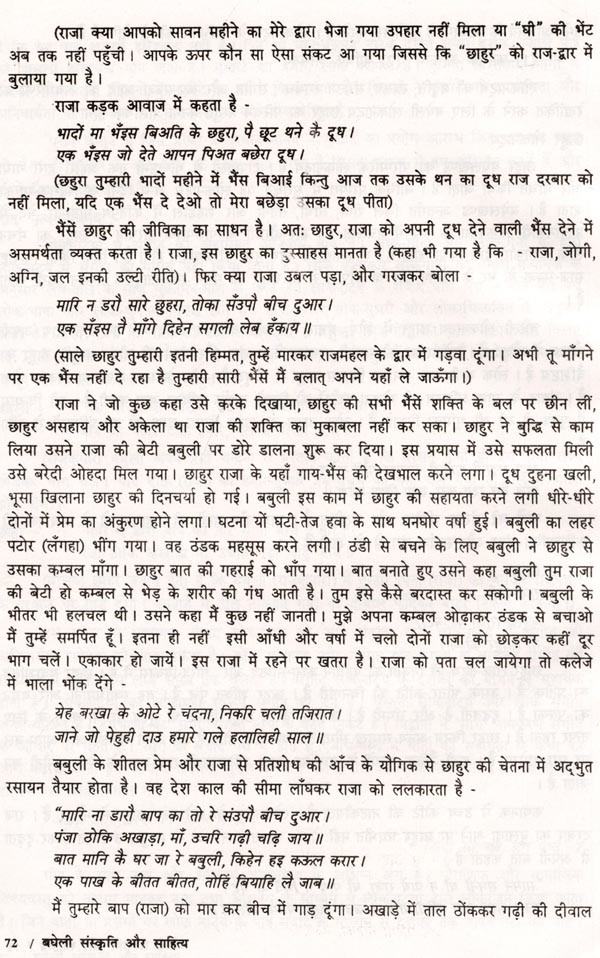 (राजा क्या आपको सावन महीने का मेरे द्वारा भेजा गया उपहार नहीं मिला या “घी” की भेंट
अब तक नहीं पहुँची। आपके ऊपर कौन सा ऐसा संकट आ गया जिससे कि “छाहुर” को राज-द्वार में
बुलाया गया है।
राजा कड़क आवाज में कहता है -
भादों मा भँइस बिअति के छहुरा, पै छूट थने कै दूध।
एक भँइस जो देते आपन पिअत बछेरा दूध।
(छहुरा तुम्हारी भादों महीने में भैंस बिआई किन्तु आज तक उसके थन का दूध राज दरबार को
नहीं मिला, यदि एक भैंस दे देओ तो मेरा बछेड़ा उसका दूध पीता)
भैंसें छाहुर की जीविका का साधन है। अतः छाहुर, राजा को अपनी दूध देने वाली भैंस देने में
असमर्थता व्यक्त करता है। राजा, इस छाहुर का दुस्साहस मानता है (कहा भी गया है कि - राजा, जोगी,
अग्नि, जल इनकी उल्टी रीति)। फिर क्या राजा उबल पड़ा, और गरजकर बोला -
मारि न डरौ सारे छुहरा, तोका सँउपौ बीच दुआर।
एक सँइस तै माँगे दिहेन सगली लेब हँकाय॥
(साले छाहुर तुम्हारी इतनी हिम्मत, तुम्हें मारकर राजमहल के द्वार में गड़वा दूंगा। अभी तू माँगने
पर एक भैंस नहीं दे रहा है तुम्हारी सारी भैंसें मैं बलात् अपने यहाँ ले जाऊँगा।)
राजा ने जो कुछ कहा उसे करके दिखाया, छाहुर की सभी भैंसें शक्ति के बल पर छीन लीं,
छाहुर असहाय और अकेला था राजा की शक्ति का मुकाबला नहीं कर सका। छाहुर ने बुद्धि से काम
लिया उसने राजा की बेटी बबुली पर डोरे डालना शुरू कर दिया। इस प्रयास में उसे सफलता मिली
उसे बरेदी ओहदा मिल गया। छाहुर राजा के यहाँ गाय-भैंस की देखभाल करने लगा। दूध दुहना खली,
भूसा खिलाना छाहुर की दिनचर्या हो गई। बबुली इस काम में छाहुर की सहायता करने लगी धीरे-धीरे
दोनों में प्रेम का अंकुरण होने लगा। घटना यों घटी-तेज हवा के साथ घनघोर वर्षा हुई। बबुली का लहर
पटोर (लँगहा) भींग गया। वह ठंडक महसूस करने लगी। ठंडी से बचने के लिए बबुली ने छाहुर से
उसका कम्बल माँगा। छाहुर बात की गहराई को भाँप गया। बात बनाते हुए उसने कहा बबुली तुम राजा
की बेटी हो कम्बल से भेड़ के शरीर की गंध आती है। तुम इसे कैसे बरदास्त कर सकोगी। बबुली के
भीतर भी हलचल थी। उसने कहा मैं कुछ नहीं जानती। मुझे अपना कम्बल ओढ़ाकर ठंडक से बचाओ
मैं तुम्हें समर्पित हूँ। इतना ही नहीं इसी आँधी और वर्षा में चलो दोनों राजा को छोड़कर कहीं दूर
भाग चलें। एकाकार हो जायें। इस राज में रहने पर खतरा है। राजा को पता चल जायेगा तो कलेजे
में भाला भोंक देंगे।
येह बरखा के ओटे रे चंदना, निकरि चली तजिरात।
जाने जो पेहुही दाउ हमारे गले हलालिही साल॥
बबुली के शीतल प्रेम और राजा से प्रतिशोध की आँच के यौगिक से छाहुर की चेतना में अद्भुत
रसायन तैयार होता है। वह देश काल की सीमा लाँघकर राजा को ललकारता है -
“मारि ना डारौ बाप का तो रे सँउपौ बीच दुआर।
पंजा ठोकि अखाड़ा, माँ, उचरि गढ़ी चढ़ि जाय॥
बात मानि कै घर जा रे बबुली, किहेन हइ कऊल करार।
एक पाख के बीतत बीतत, तोहिं बियाहि लै जाब॥
मैं तुम्हारे बाप (राजा) को मार कर बीच में गाड़ दूंगा। अखाड़े में ताल ठोंककर गढ़ी की दीवाल
72 / बघेली संस्कृति और साहित्य